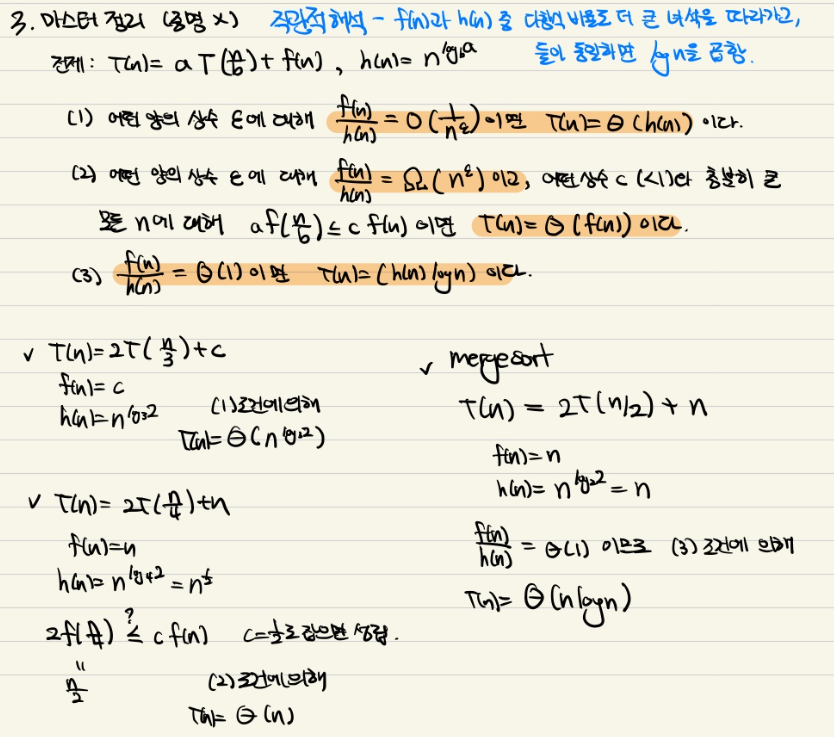 3. 마스터 정리 (증명 X) 직관적 해석 - f(n)과 h(n) 중 다항식 비율로 더 큰 녀석을 따라가고,
둘이 동일하면 log n을 곱함.
전제 : T(n) = a T(n/b) + f(n) , h(n) = n^{log_b a}
(1) 어떤 양의 상수 ε에 대해 f(n)/h(n) = O(1/n^ε) 이면 T(n) = Θ(h(n)) 이다.
(2) 어떤 양의 상수 ε에 대해 f(n)/h(n) = Ω(n^ε) 이고, 어떤 상수 c (<1)와 충분히 큰
모든 n에 대해 a f(n/b) ≤ c f(n) 이면 T(n) = Θ(f(n)) 이다.
(3) f(n)/h(n) = Θ(1) 이면 T(n) = (h(n) log n) 이다.
✓ T(n) = 2T(n/3) + c
f(n) = c
h(n) = n^{log_3 2} (1)조건에 의해
T(n) = Θ(n^{log_3 2})
✓ T(n) = 2T(n/4) + n
f(n) = n
h(n) = n^{log_4 2} = n^{1/2}
2f(n/4) ≤? c f(n) c = 1/2로 잡으면 성립.
"
n/2 (2)조건에 의해
T(n) = Θ(n)
✓ mergesort
T(n) = 2T(n/2) + n
f(n) = n
h(n) = n^{log_2 2} = n
f(n)/h(n) = Θ(1) 이므로 (3)조건에 의해
T(n) = Θ(n log n)